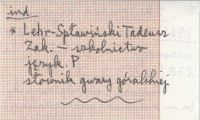 ind
* Lehr-Spławiński Tadeusz
Zak. – szkolnictwo
język. P
słownik gwary góralskiej